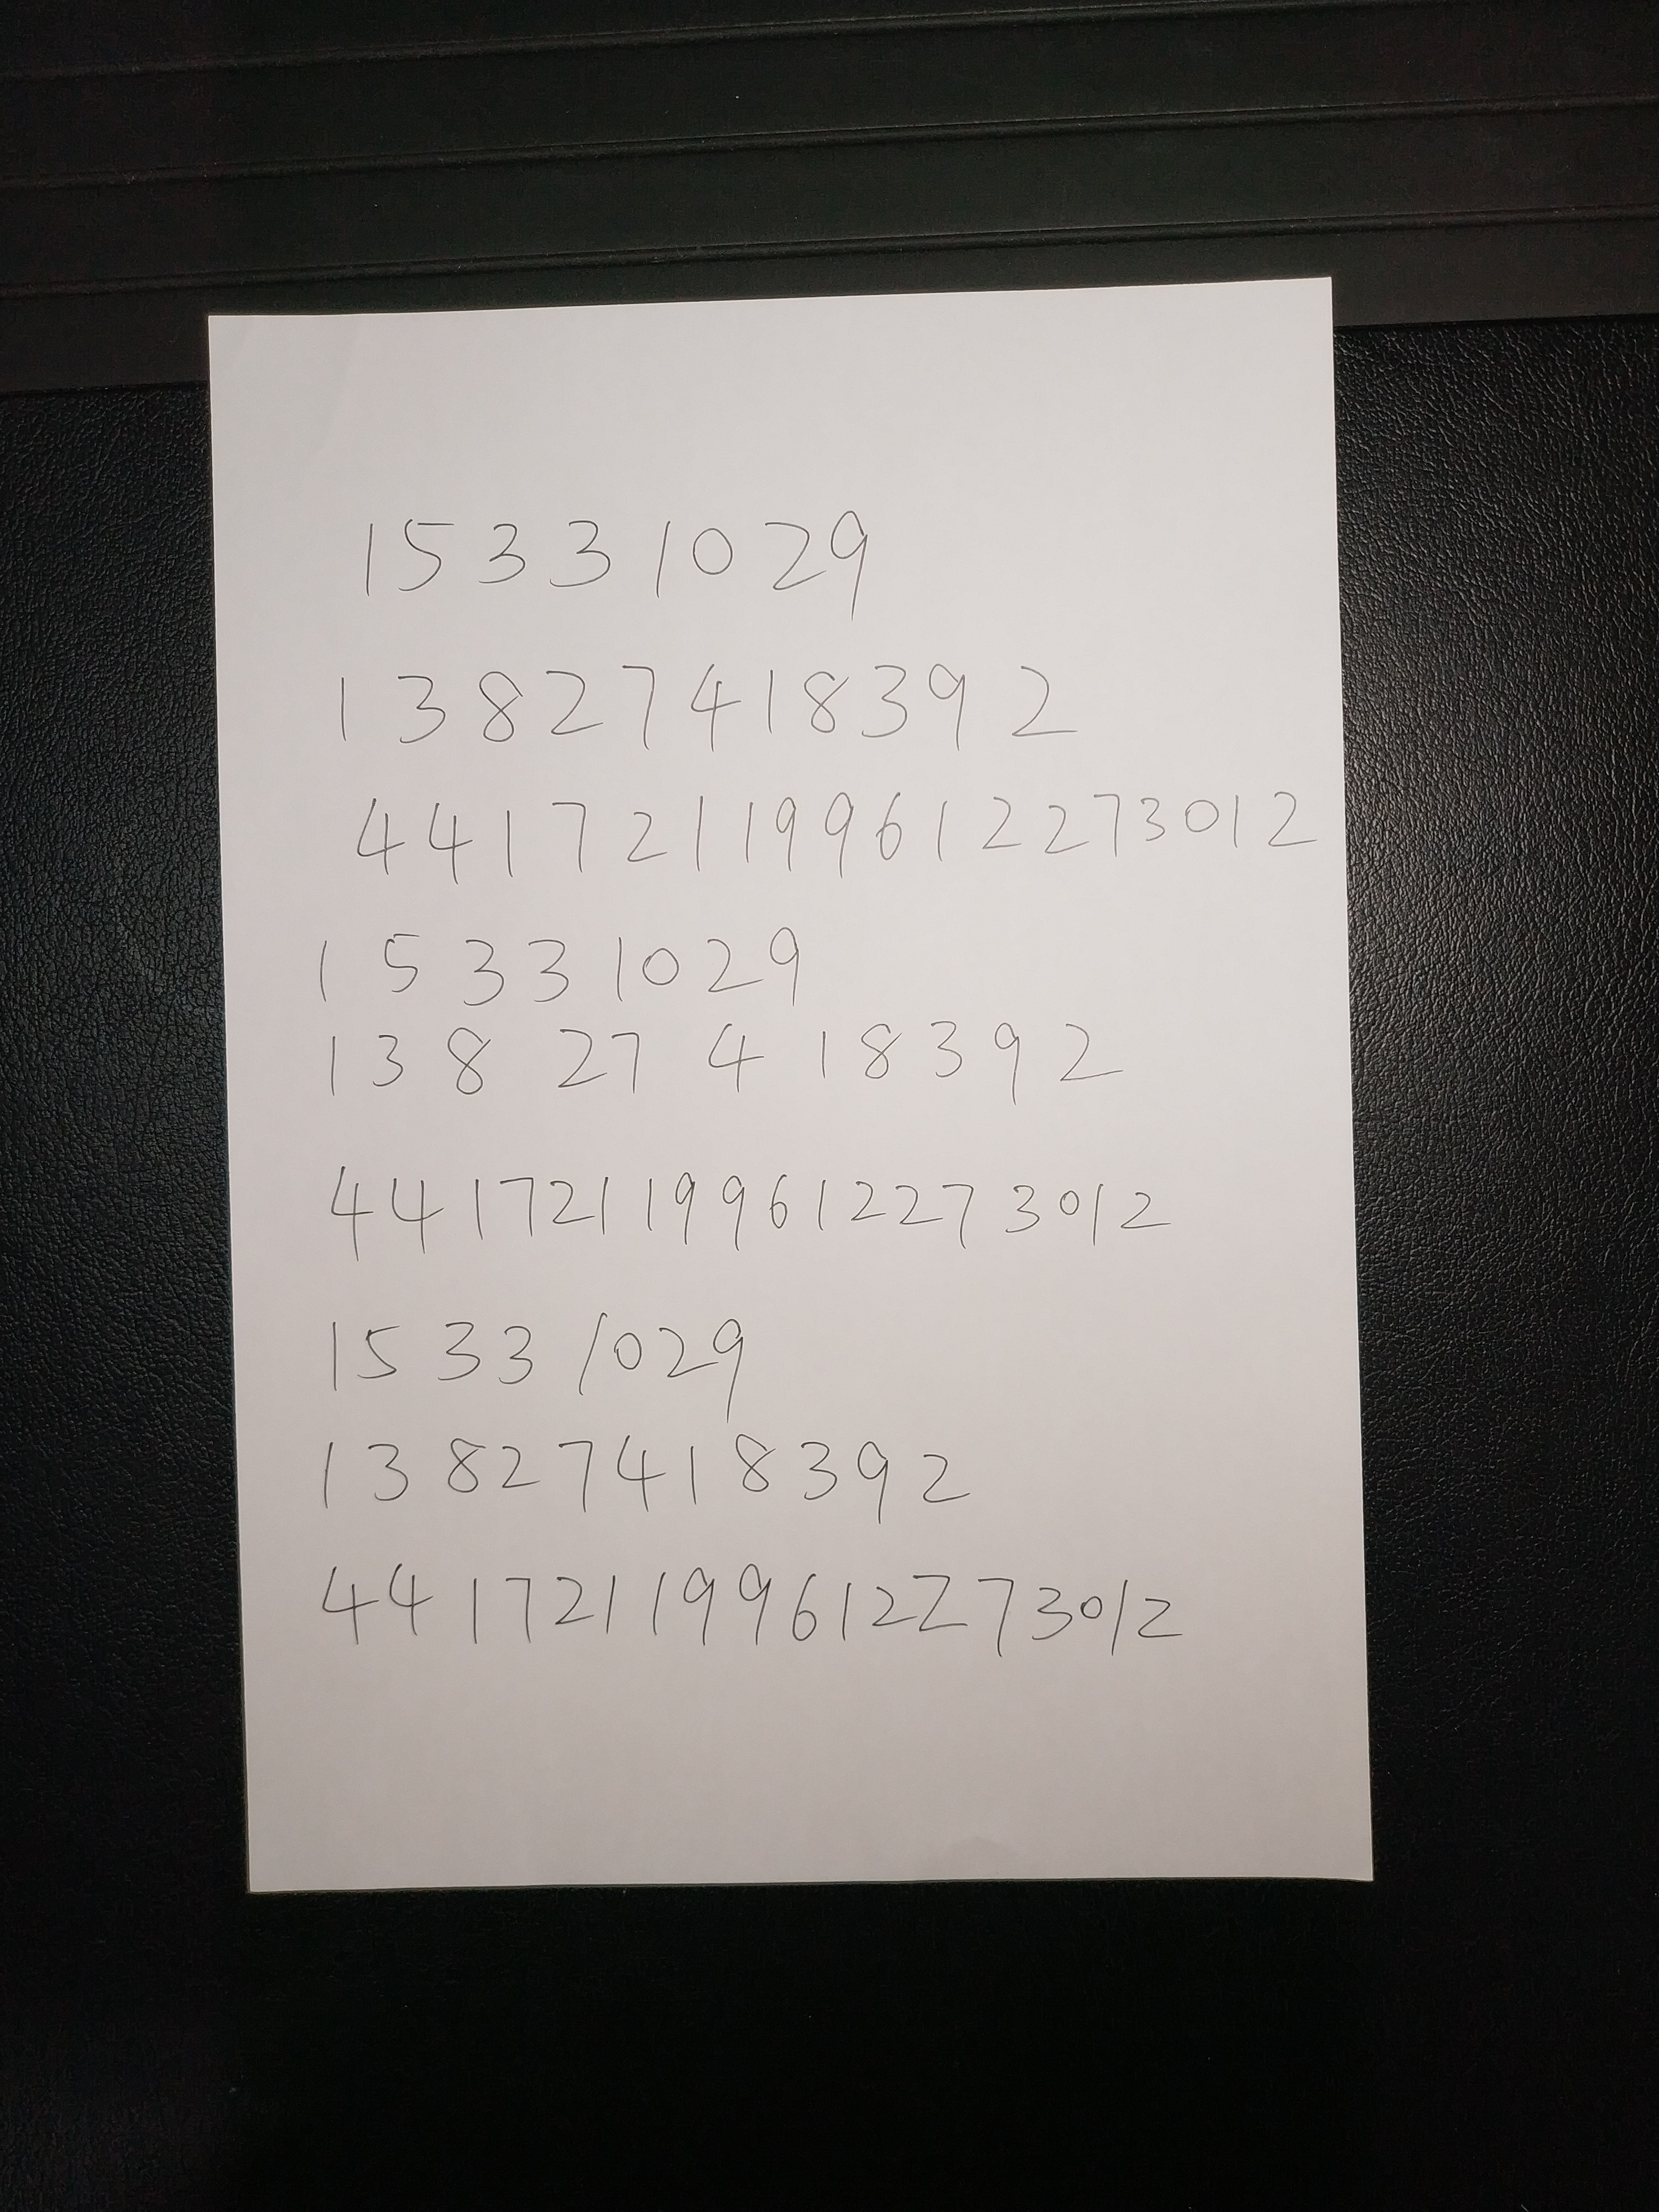 15331029
13827418392
441721199612273012
15331029
138 27 4 18392
441721199612273012
15331029
13827418392
441721199612273012